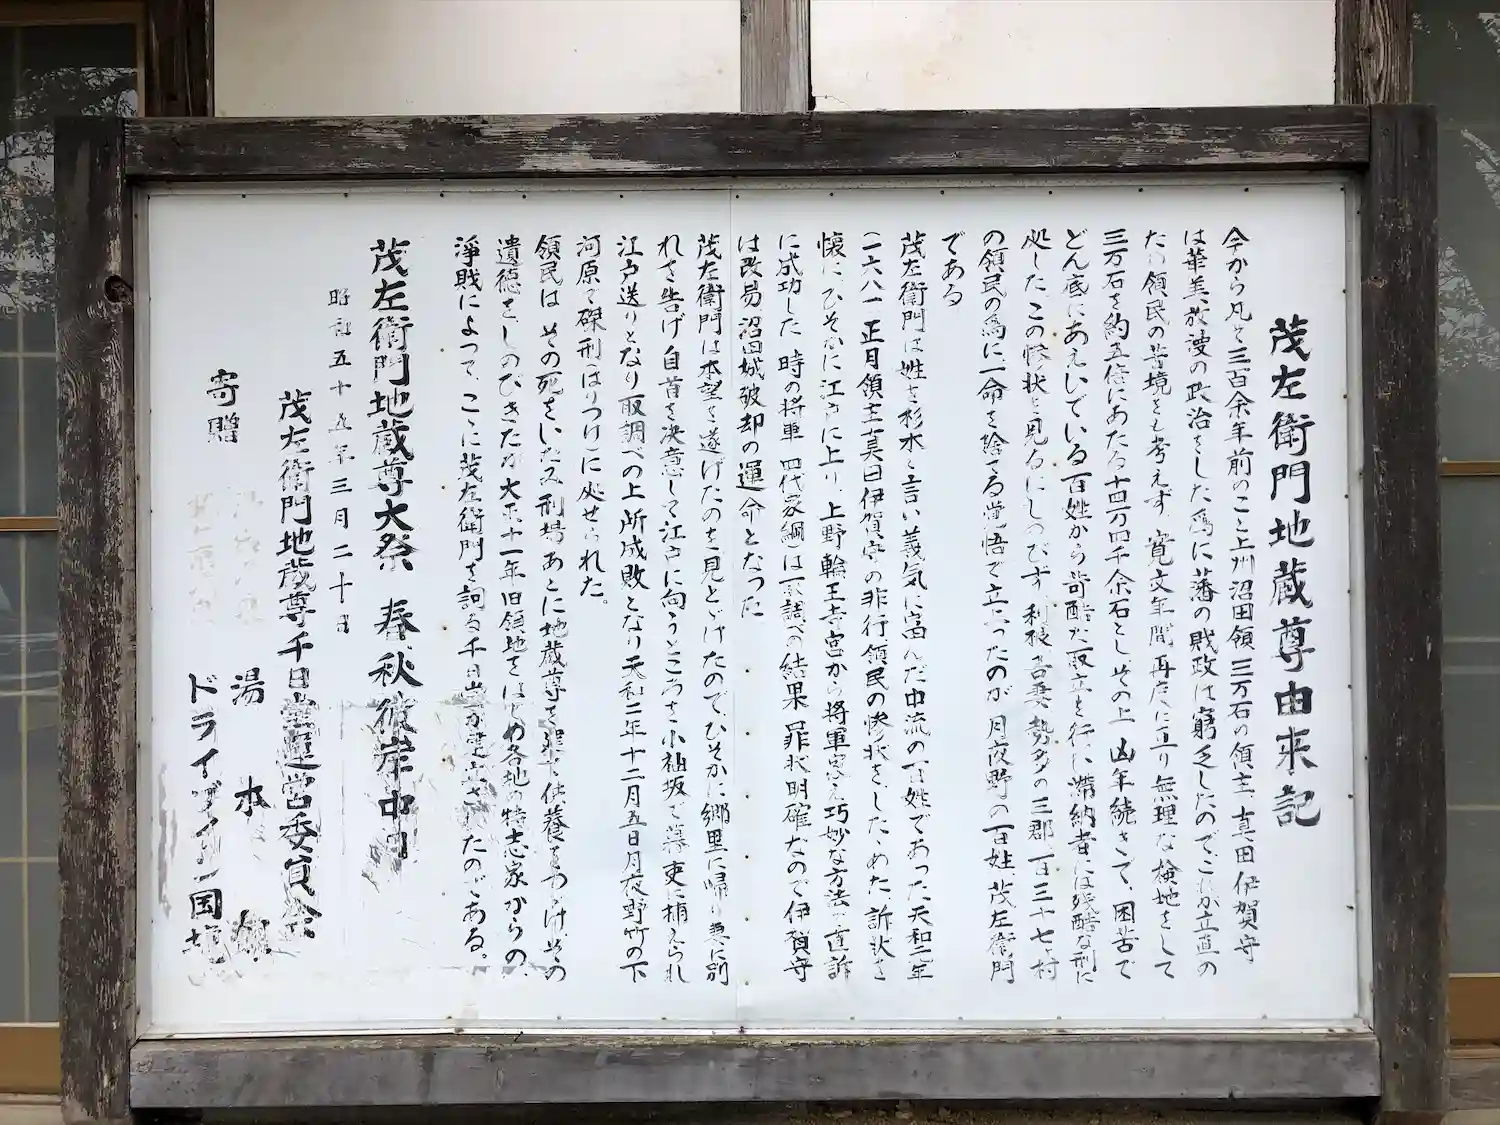 茂左衛門地蔵尊由来記
今から凡そ三百余年前のこと上州沼田領三万石の領主、真田伊賀守
は華美放漫の政治をした為に藩の財政は窮乏したのでこれが立直の
ため領民の苦境をも考えず、寛文年間再度に亘り無理な検地をして
三万石を約五倍にあたる十四万四千余石とし、その上、凶年続きで、困苦で
どん底にあえいでいる百姓から苛酷な取立を行い滞納者には残酷な刑に
処した、この惨状を見るにしのびず、利根吾妻勢多の三郡、百三十七ヶ村
の領民の為に一命を捨てる覚悟で立ったのが、月夜野の百姓、茂左衛門
である
茂左衛門は姓を杉木と言い義気に富んだ中流の百姓であった天和元年
(一六八一)正月領主真田伊賀守の非行領民の惨状をしたためた、訴状を
懐に、ひそかに江戸に上り、上野輪王寺宮から将軍家え巧妙な方法で直訴
に成功した、時の将軍(四代家綱)は取調べの結果、罪状明確なので伊賀守
は改易沼田城破却の運命となった
茂左衛門は本望を遂げたのを見とどけたので、ひそかに郷里に帰り妻に別
れを告げ自首を決意して江戸に向うところを小袖坂で幕吏に捕えられ
江戸送りとなり取調べの上所成敗となり天和二年十二月五日月夜野竹の下
河原で磔刑(はりつけ)に処せられた。
領民は、その死をいたみ刑場あとに地蔵尊を建て供養をつづけその
遺徳を、しのびきたが大正十一年旧領地をはじめ各地の特志家からの、
淨財によって、ここに茂左衛門を祠る千日堂が建立されたのである。
茂左衛門地蔵尊大祭 春秋彼岸中日
昭和五十五年三月二十日
茂左衛門地蔵尊千日堂運営委員会
寄贈 湯 水
ドライブイン国境